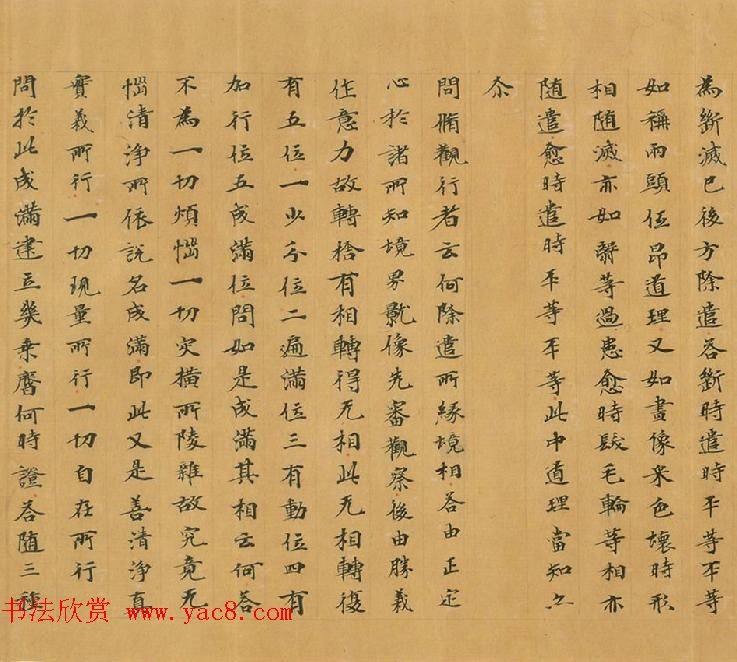 為斷滅已後方除遣答斷時遣時平等平等
如稱兩頭低昂道理又如畫像采色壞時形
相随滅亦如翳等過患愈時髮毛輪等相亦
随遣愈時遣時平等平等此中道理當知亦
尒
問脩觀行者云何除遣所緣境相答由正定
心於諸所知境界影像先審觀察後由勝義
作意力故轉捨有相轉得无相此无相轉復
有五位一少分位二遍滿位三有動位四有
加行位五成滿位問如是成滿其相云何答
不為一切煩惱一切灾橫所陵雜故究竟无
惱清淨所依說名成滿即此又是善清淨真
實義所行一切現量所行一切自在所行
問於此成滿建立幾乘齊何時證答随三種
书法欣赏 www.yac8.com